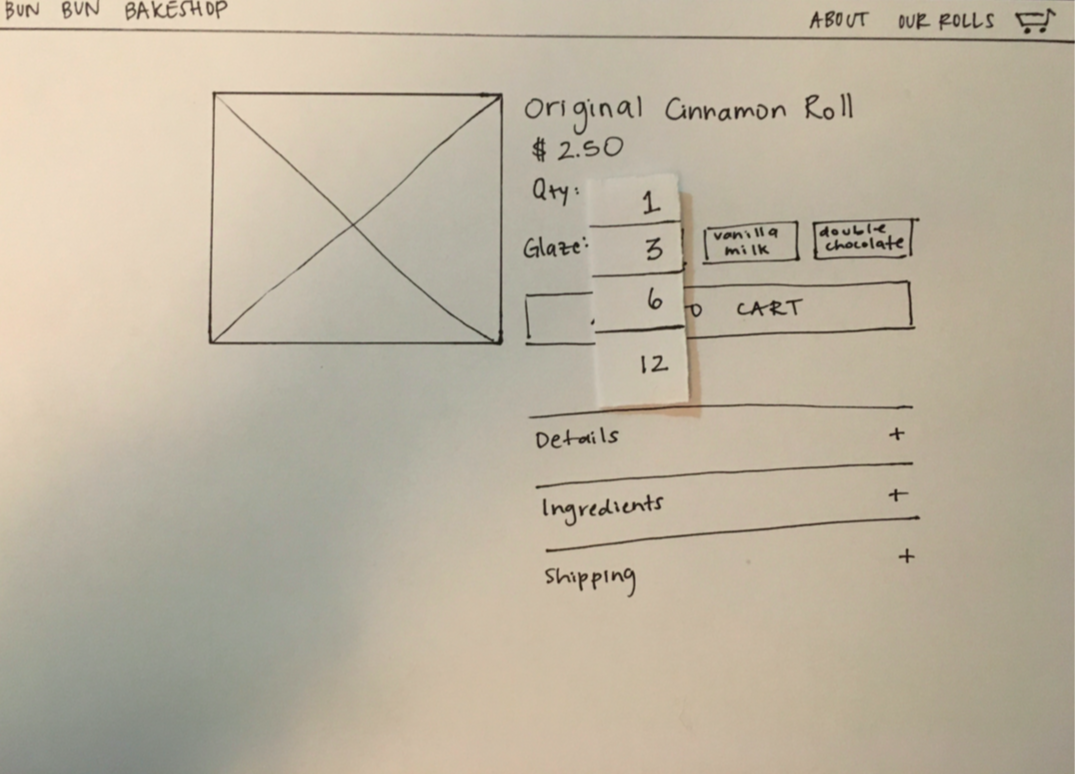 BUN BUN BAKESHOP
ABOUT OUR ROLLS
Original Cinnamon Roll
$ 2.50
Qty:
1
Glaze:
3
vanilla
milk
double
chocolate
6
CART
12
Details +
Ingredients +
Shipping +